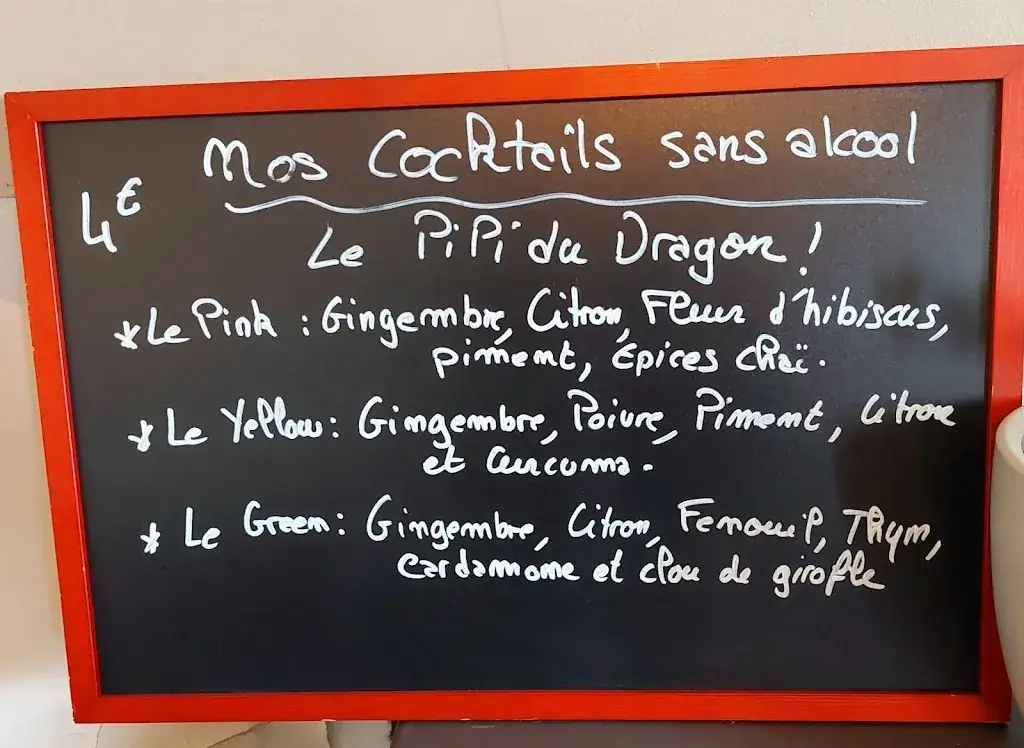 Mos Cocktails sans alcool
4€
Le PiPi du Dragon !
*Le Pink : Gingembre, Citron, Fleur d'hibiscus,
piment, Epices chaï.
* Le Yellow : Gingembre, Poivre, Piment, Citron
et Curcuma.
* Le Green : Gingembre, Citron, Fenouil, Thym,
cardamome et clou de girofle